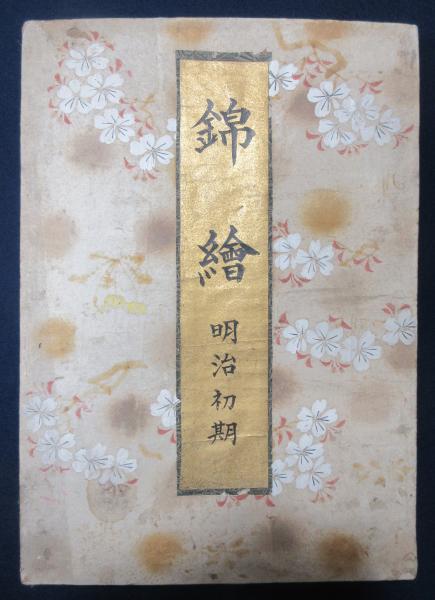 錦繪明治初期